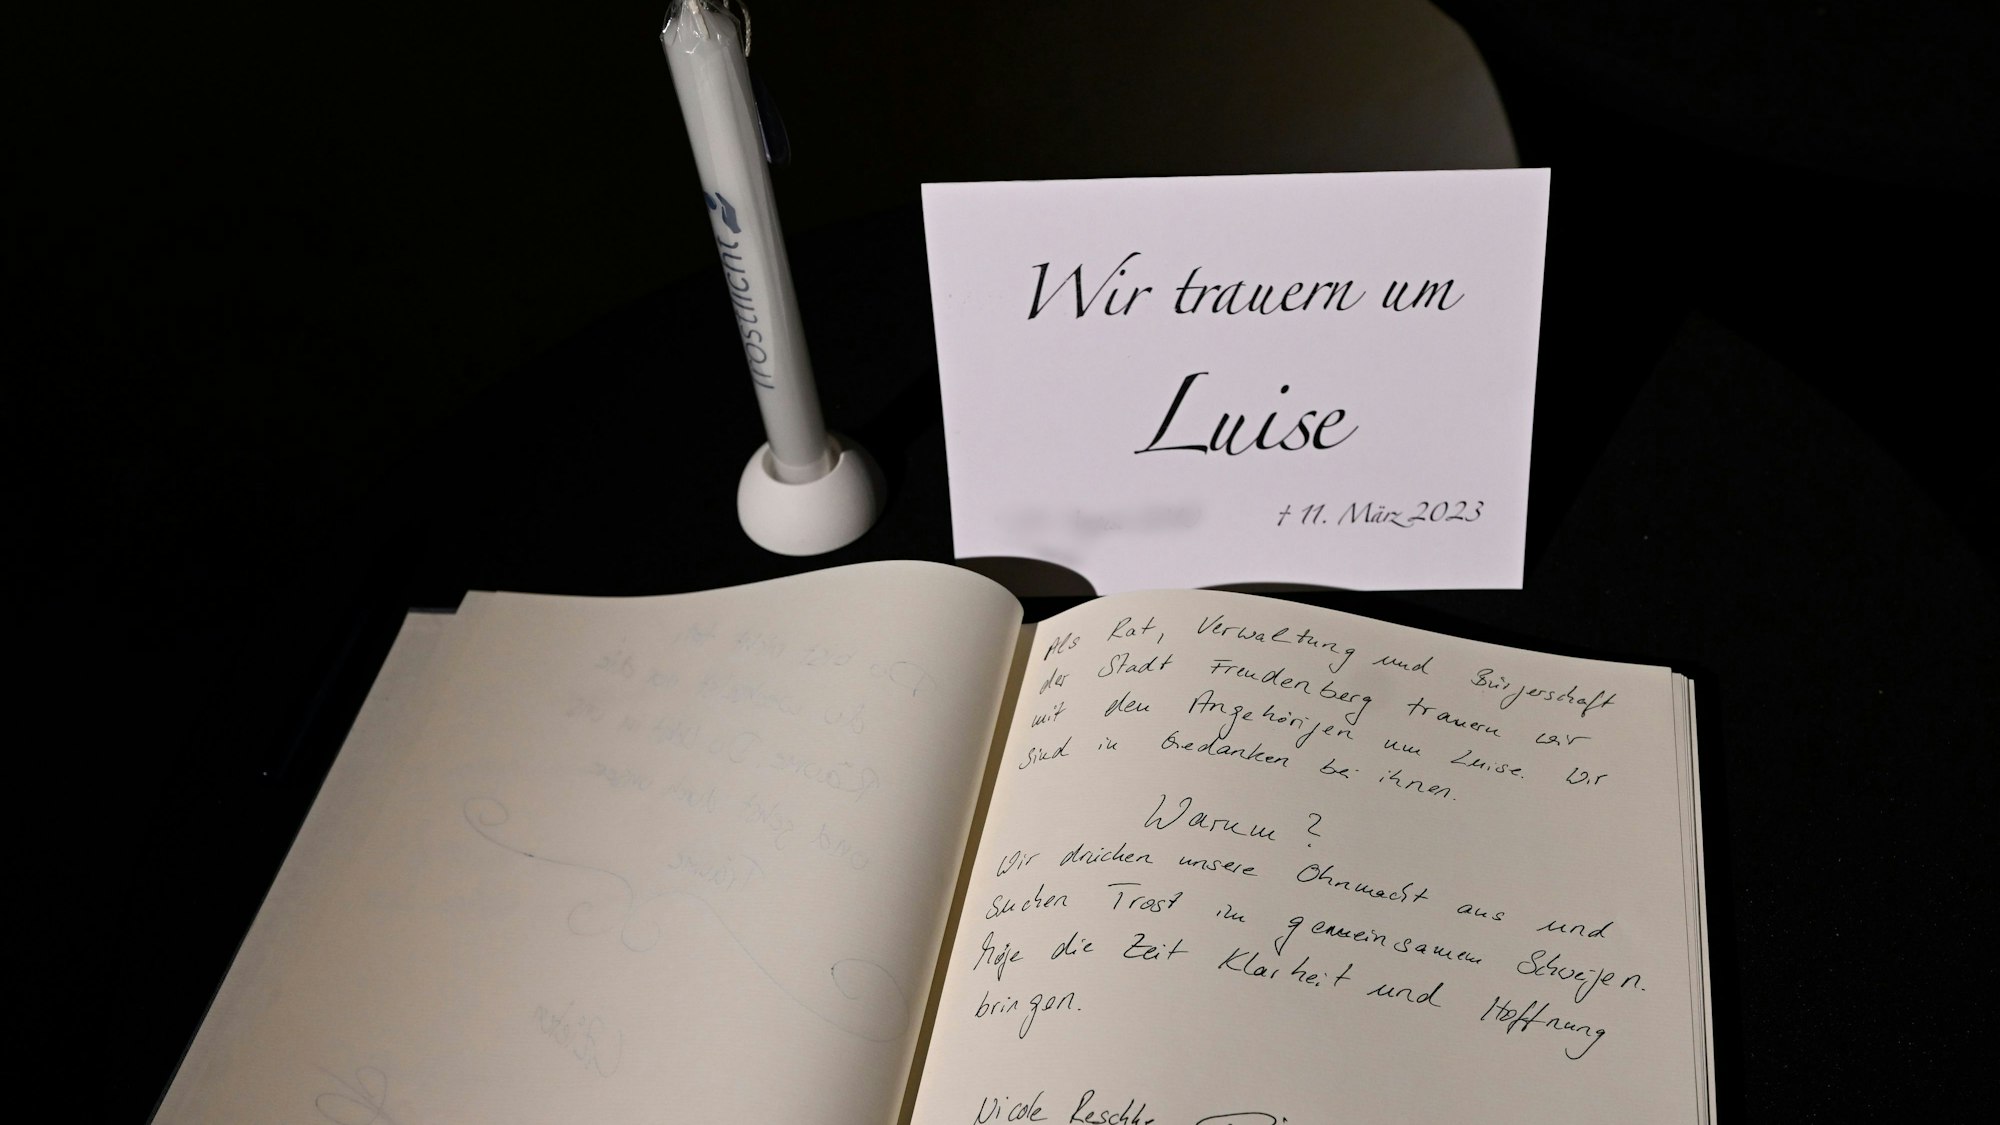 Trostlicht
Wir trauern um
Luise
† 11. März 2023
Als Rat, Verwaltung und Bürgerschaft
der Stadt Freudenberg trauern wir
mit den Angehörigen um Luise. Wir
sind in Gedanken bei ihnen.
Warum?
Wir drücken unsere Ohnmacht aus und
suchen Trost im gemeinsamen Schweigen.
Möge die Zeit Klarheit und Hoffnung
bringen.
Nicole Reschke